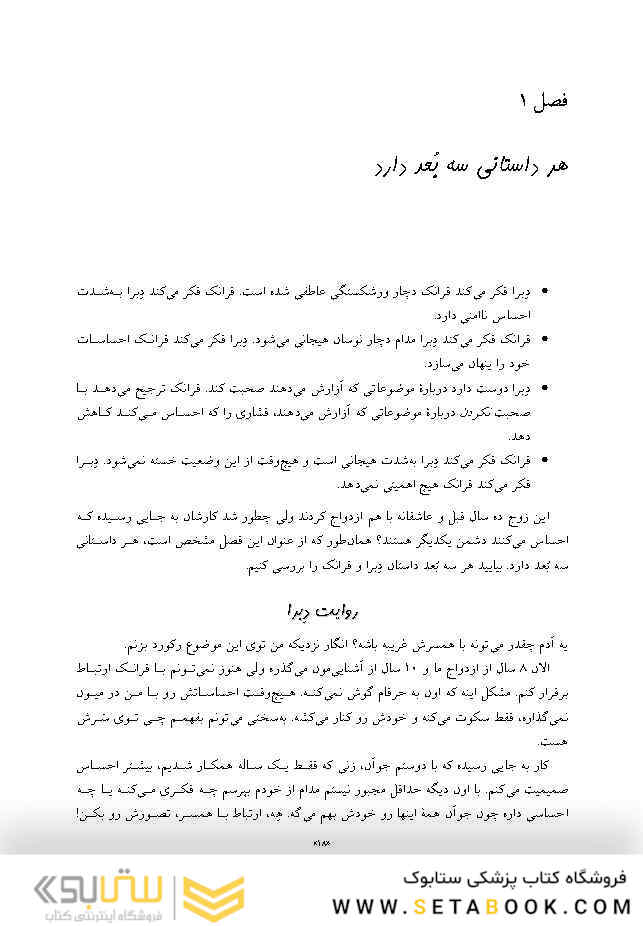 فصل ۱
هر داستانی سه بُعد دارد
• دِبرا فکر می‌کند فرانک دچار ورشکستگی عاطفی شده است. فرانک فکر می‌کند دِبرا به‌شدت
احساس ناامنی دارد.
• فرانک فکر می‌کند دِبرا مدام دچار نوسان هیجانی می‌شود. دِبرا فکر می‌کند فرانک احساسات
خود را پنهان می‌سازد.
• دِبرا دوست دارد دربارهٔ موضوعاتی که آزارش می‌دهند صحبت کند. فرانک ترجیح می‌دهد با
صحبت نکردن دربارهٔ موضوعاتی که آزارش می‌دهند، فشاری را که احساس می‌کند کاهش
دهد.
• فرانک فکر می‌کند دِبرا به‌شدت هیجانی است و هیچ‌وقت از این وضعیت خسته نمی‌شود. دِبرا
فکر می‌کند فرانک هیچ اهمیتی نمی‌دهد.
این زوج ده سال قبل و عاشقانه با هم ازدواج کردند ولی چطور شد کارشان به جایی رسیده که
احساس می‌کنند دشمن یکدیگر هستند؟ همان‌طور که از عنوان این فصل مشخص است، هر داستانی
سه بُعد دارد. بیایید هر سه بُعد داستان دِبرا و فرانک را بررسی کنیم.
روایت دِبرا
یه آدم چقدر می‌تونه با همسرش غریبه باشه؟ انگار نزدیکه من توی این موضوع رکورد بزنم.
الان ۸ سال از ازدواج ما و ۱۰ سال از آشنایی‌مون می‌گذره ولی هنوز نمی‌تونم با فرانک ارتباط
برقرار کنم. مشکل اینه که اون به حرفام گوش نمی‌کنه. هیچ‌وقت احساساتش رو با من در میون
نمی‌گذاره، فقط سکوت می‌کنه و خودش رو کنار می‌کشه. به‌سختی می‌تونم بفهمم چی توی سَرش
هست.
کار به جایی رسیده که با دوستم جوآن، زنی که فقط یک ساله همکار شدیم، بیشتر احساس
صمیمیت می‌کنم. با اون دیگه حداقل مجبور نیستم مدام از خودم بپرسم چه فکری می‌کنه یا چه
احساسی داره چون جوآن همهٔ اینها رو خودش بهم می‌گه. هِه، ارتباط با همسر، تصورش رو بکن!
«۱۸»
فروشگاه کتاب پزشکی ستابوک
WWW.SETABOOK.COM
ستابوک
فروشگاه اینترنتی کتاب